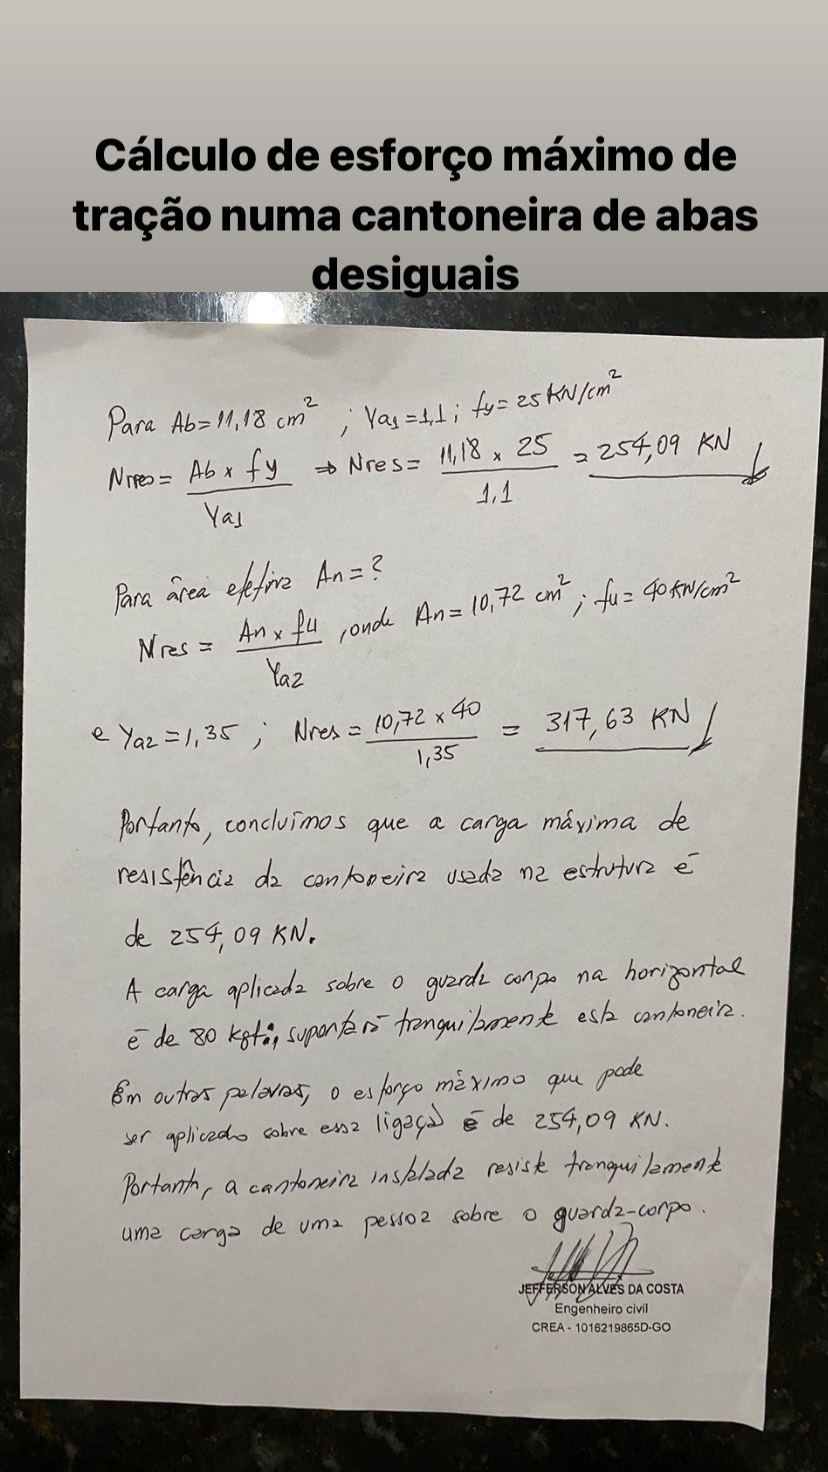 Cálculo de esforço máximo de
tração numa cantoneira de abas
desiguais
Para Ab=11,18 cm² ; Ya1=1,1 ; fy=25 KN/cm²
Nres= Ab x fy / Ya1 ⇒ Nres= 11,18 x 25 / 1,1 = 254,09 KN
Para área efetiva An=?
Nres = An x fu / Ya2 , onde An=10,72 cm² ; fu=40KN/cm²
e Ya2=1,35 ; Nres= 10,72 x 40 / 1,35 = 317,63 KN
Portanto, concluímos que a carga máxima de
resistência da cantoneira usada na estrutura é
de 254,09 KN.
A carga aplicada sobre o guarda corpo na horizontal
é de 80 kgf, suportará tranquilamente esta cantoneira.
Em outras palavras, o esforço máximo que pode
ser aplicado sobre essa ligação é de 254,09 KN.
Portanto, a cantoneira instalada resiste tranquilamente
uma carga de uma pessoa sobre o guarda-corpo.
JEFFERSON ALVES DA COSTA
Engenheiro civil
CREA - 1016219865D-GO